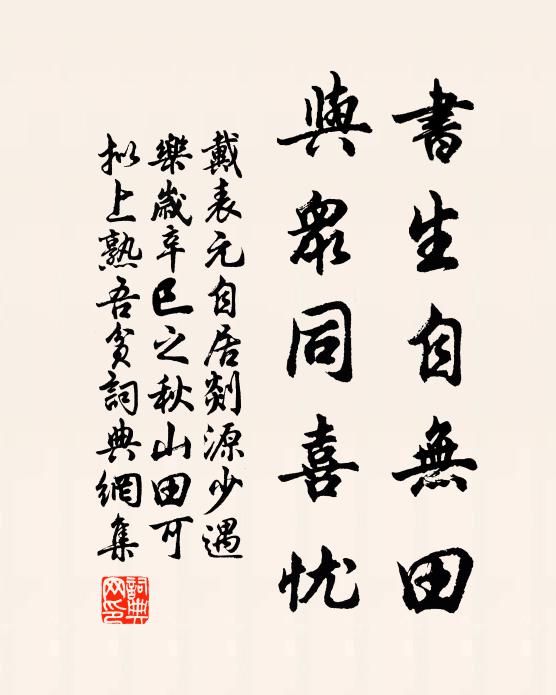 書生自無田
與眾同喜忧
戴表元自居剡源少遇
樂歲辛巳之秋山田可
拟上熟吾貧詞典網集
詞典網印